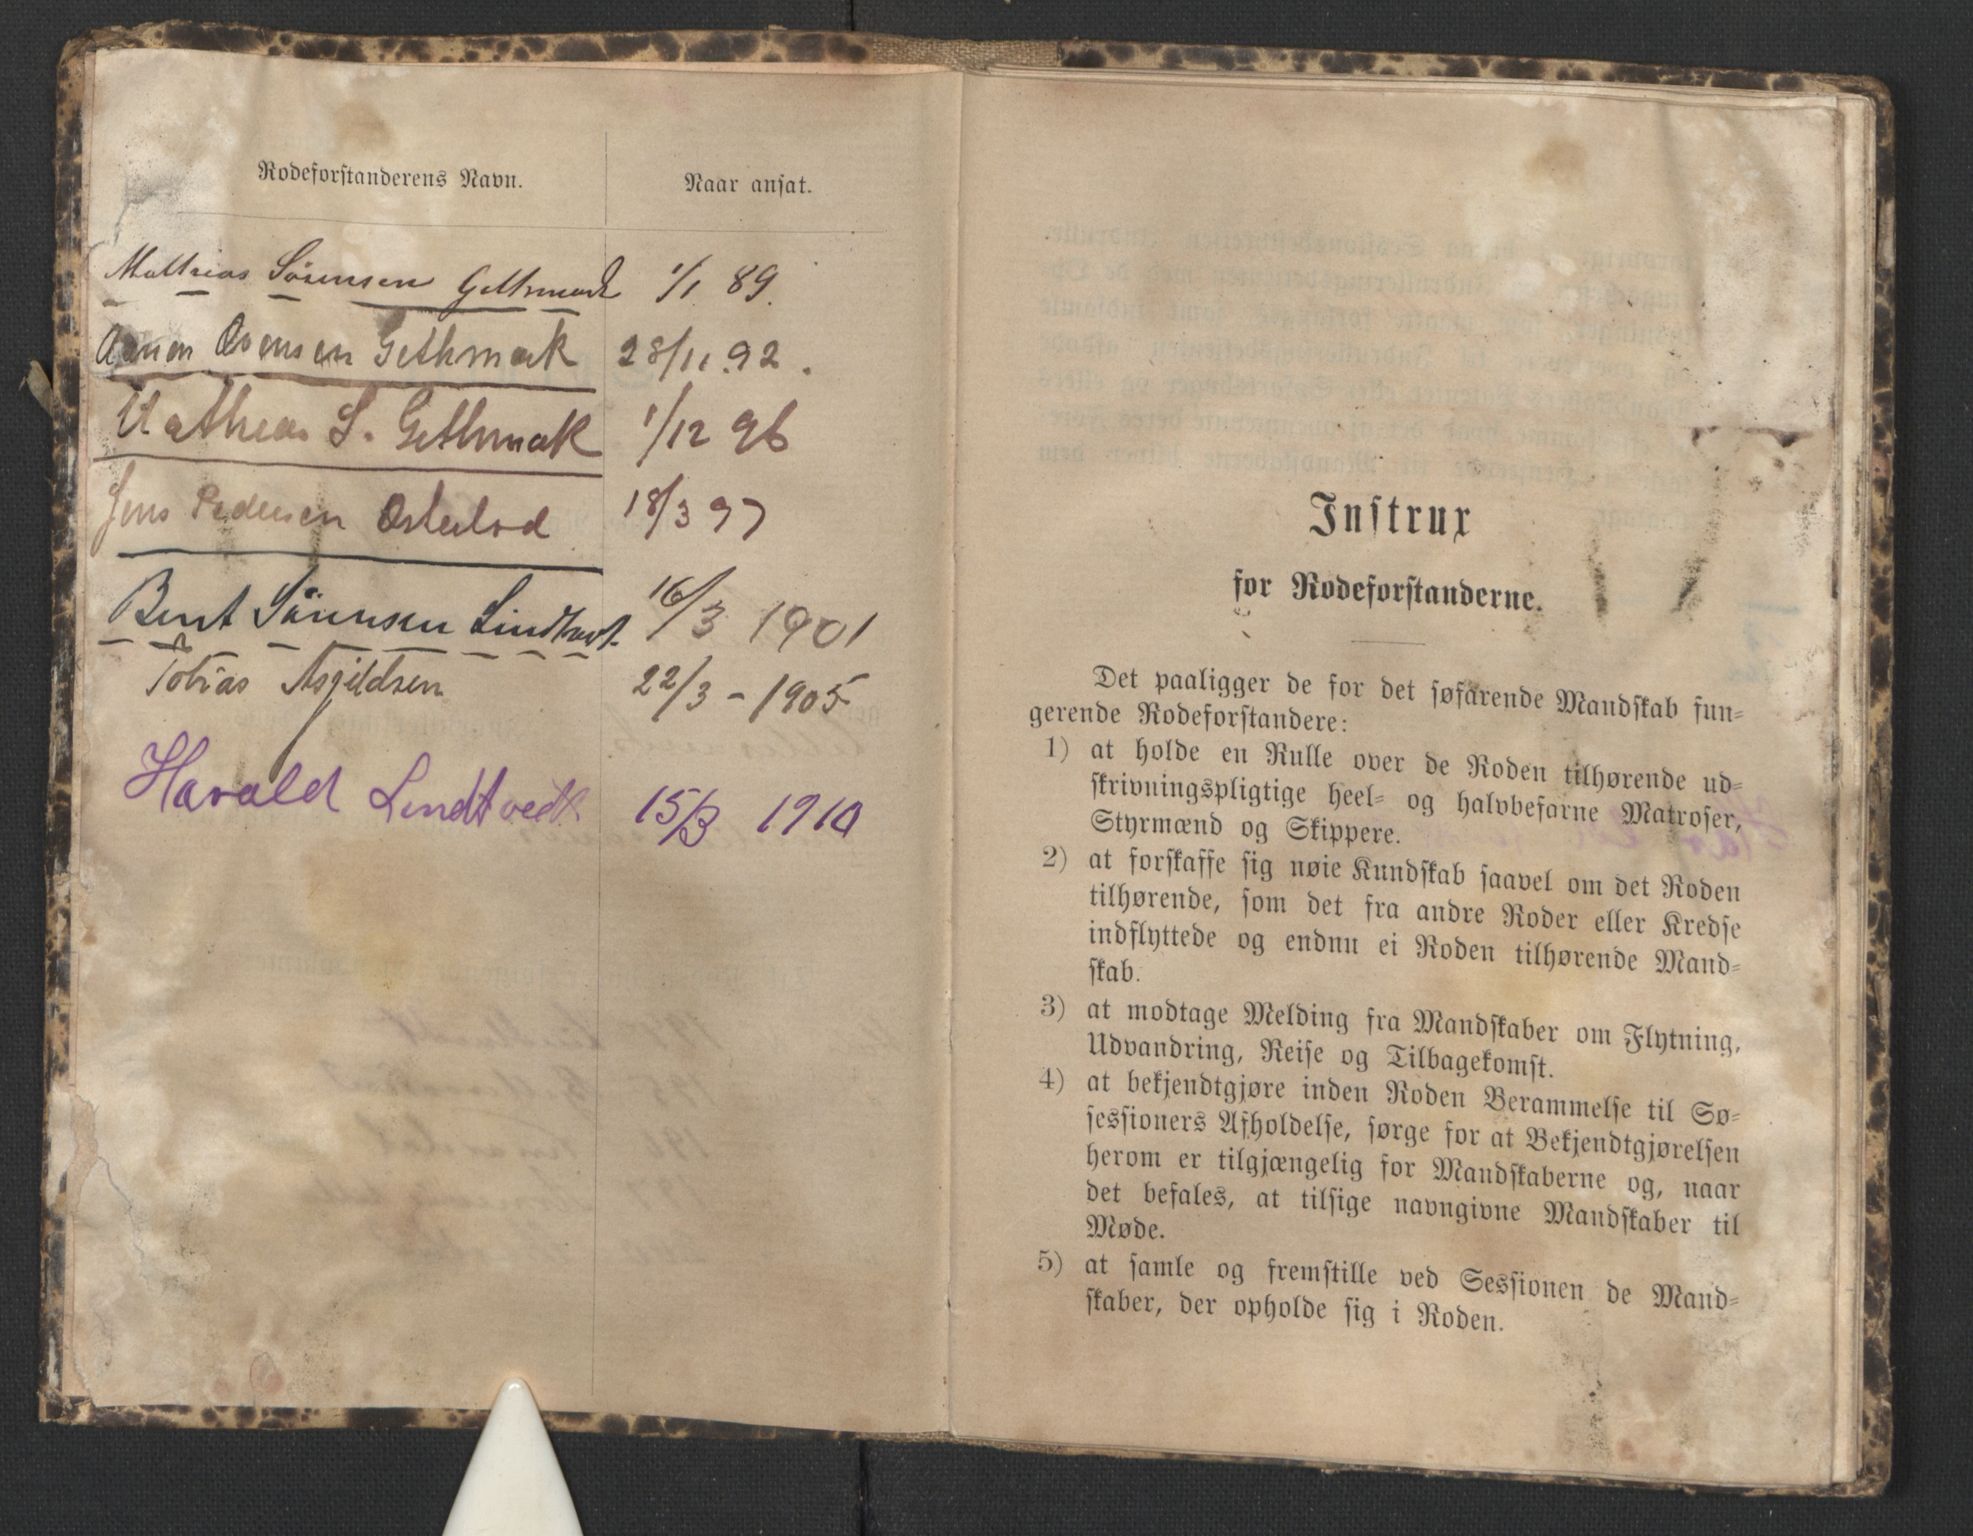 Rodeforstanderens Navn. Naar ansat.
Mathias Sörensen Gethmark 1/1. 89.
Ovensen Gethmark 28/11.92.
Mathias S. Gethmark 1/12 96
Jens Pedersen Osterlod 18/3 97
Bent Sörensen Lindtvet. 16/3 1901
Tobias Asjeldsen 22/3 - 1905
Harald Lindtvedt 15/3 1910
Instrux
for Rodeforstanderne.
Det paaligger de for det søfarende Mandskab fun-
gerende Rodeforstandere:
1) at holde en Rulle over de Roden tilhørende ud-
skrivningspligtige heel- og halvbefarne Matroser,
Styrmænd og Skippere.
2) at forskaffe sig nøie Kundskab saavel om det Roden
tilhørende, som det fra andre Roder eller Kredse
indflyttede og endnu ei Roden tilhørende Mand-
skab.
3) at modtage Melding fra Mandskaber om Flytning,
Udvandring, Reise og Tilbagekomst.
4) at bekjendtgjøre inden Roden Berammelse til Sø-
sessioners Afholdelse, sørge for at Bekjendtgjørelsen
herom er tilgjængelig for Mandskaberne og, naar
det befales, at tilsige navngivne Mandskaber til
Møde.
5) at samle og fremstille ved Sessionen de Mand-
skaber, der opholde sig i Roden.